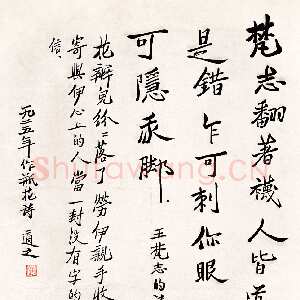 梵志翻著襪人皆道
是錯乍可刺你眼
可隱我脚
王梵志的詩
花瓣兒紛紛落了勞伊親手收
寄與伊心上的人當一封沒有字的
信
一九二五年作瓶花詩 適之